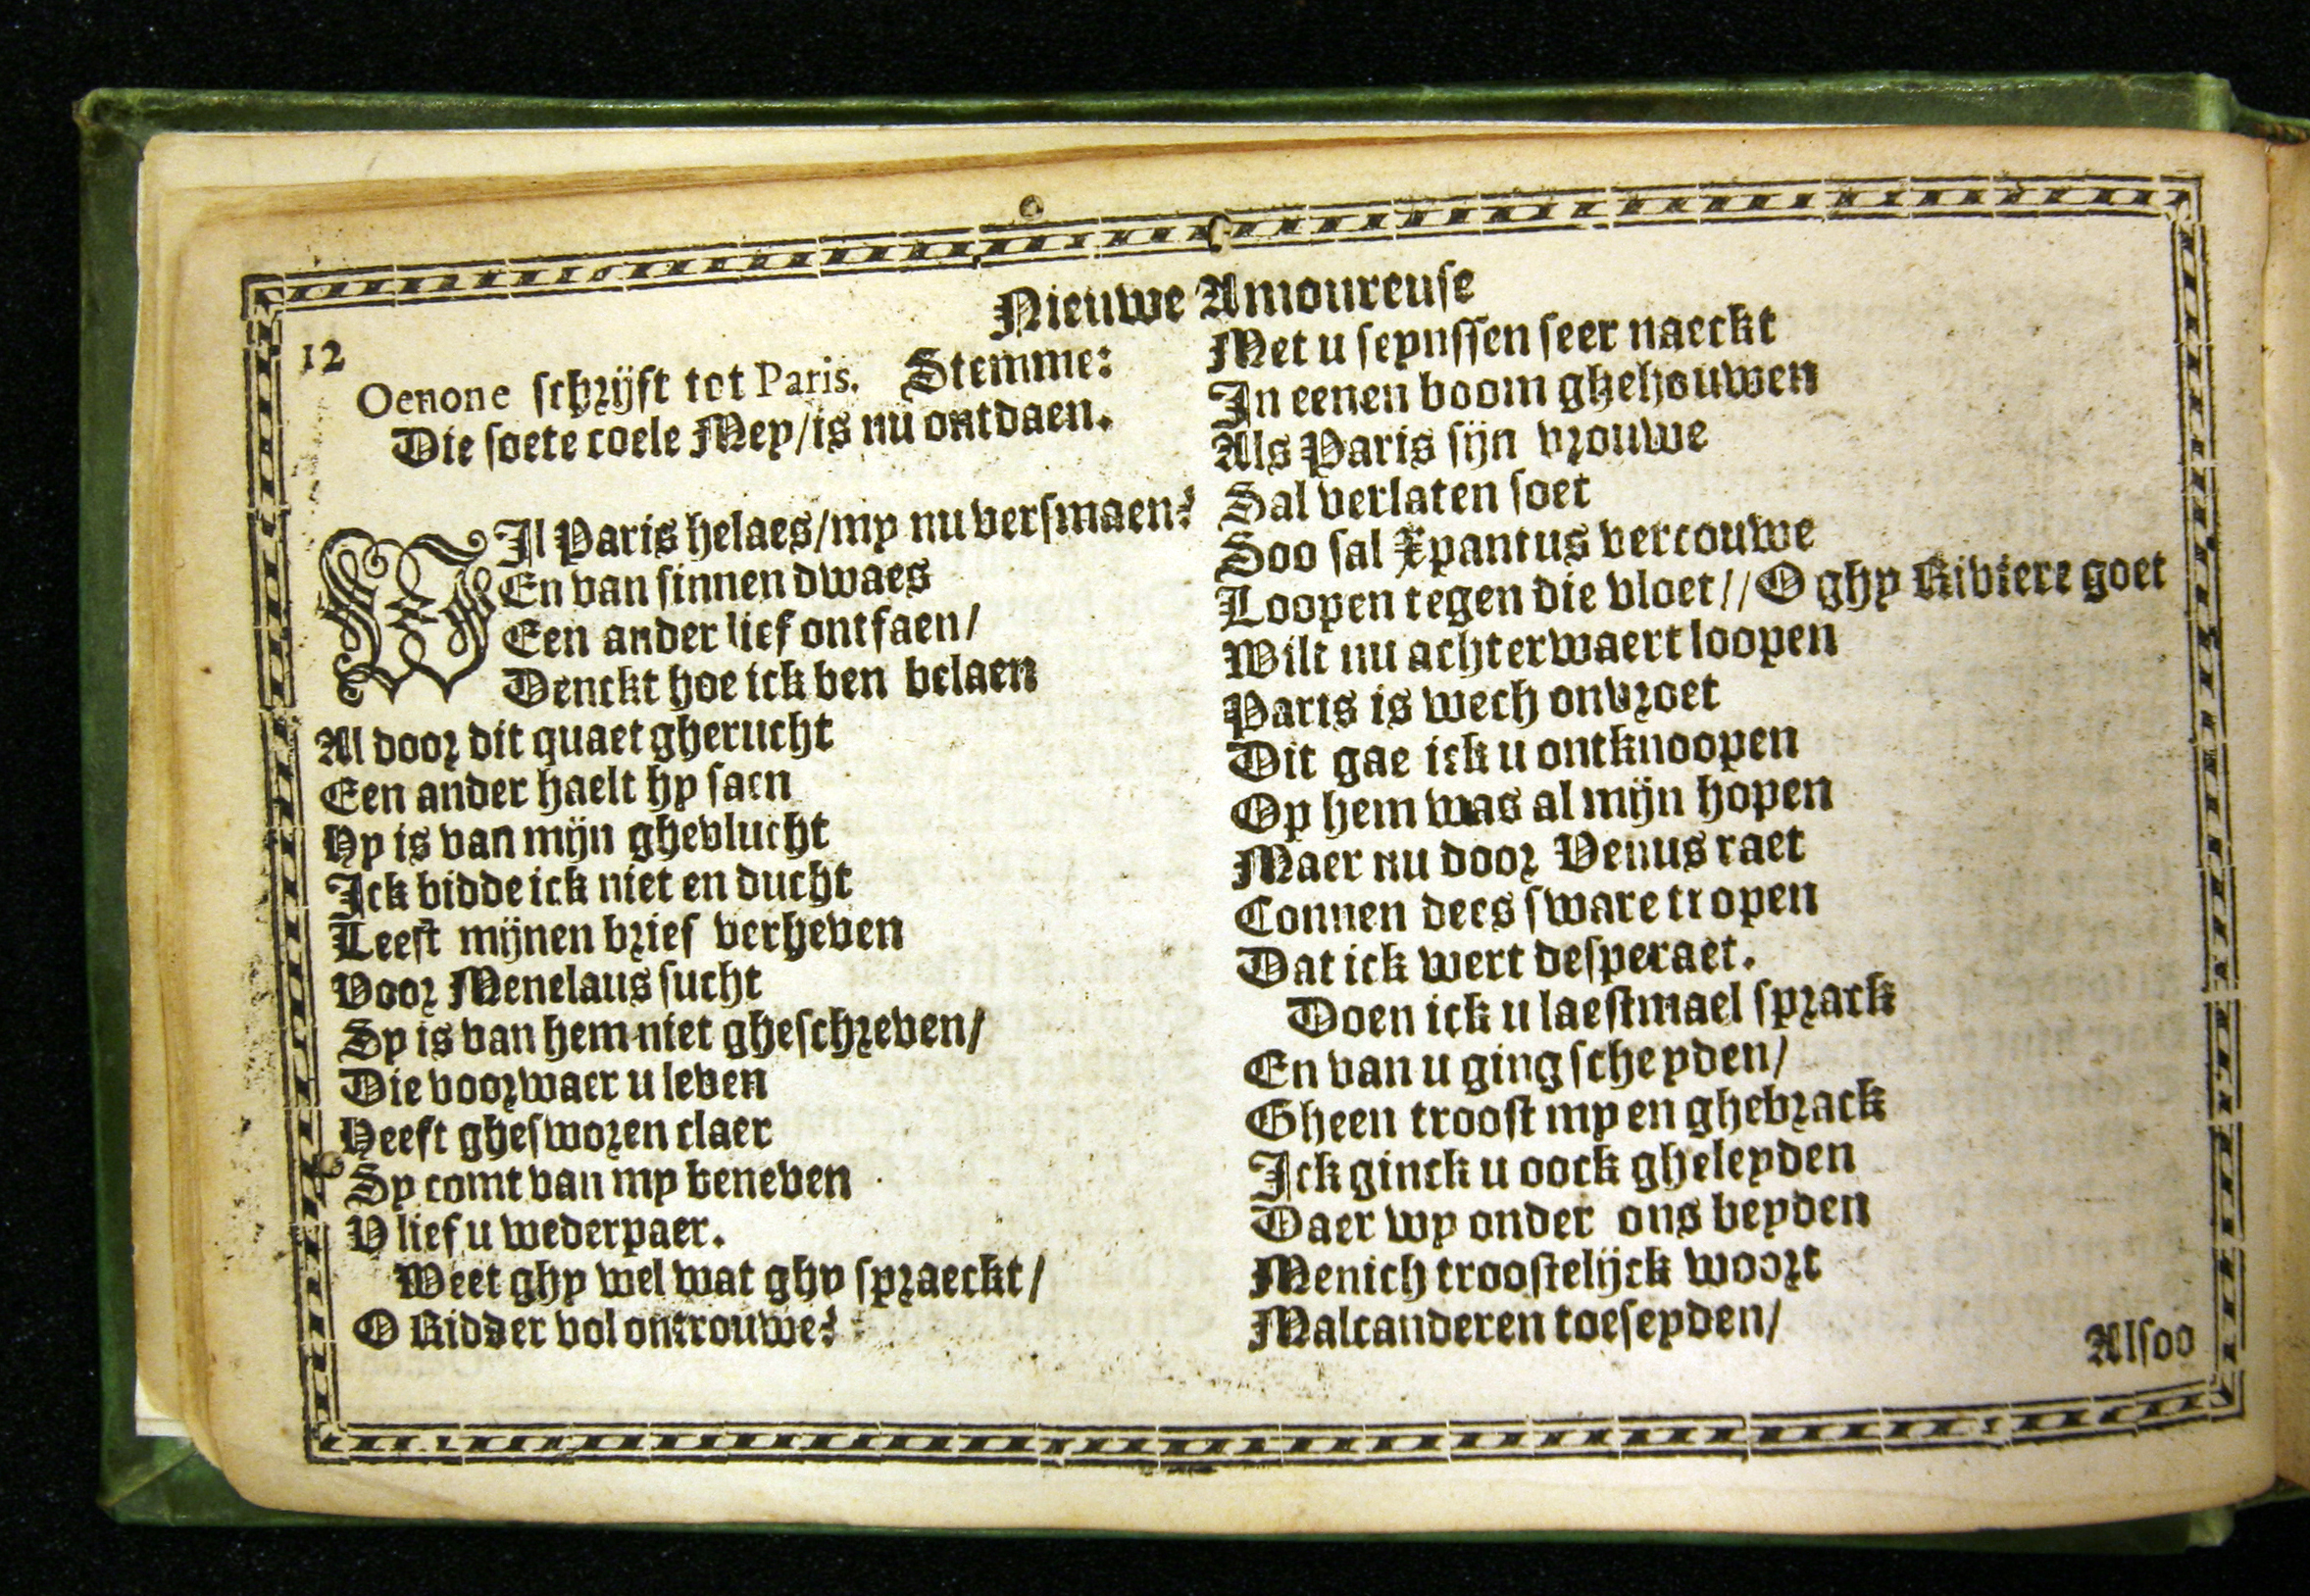 Nieuwe Amoureuse
12
Oenone schrijft tot Paris. Stemme:
Die soete coele Mey/is nu ontdaen.
WIl Paris helaes/my nu versmaen?
En van sinnen dwaes
Een ander lief ontfaen/
Denckt hoe ick ben belaen
Al door dit quaet gherucht
Een ander haelt hy saen
Hy is van mijn ghevlucht
Ick bidde ick niet en ducht
Leest mijnen brief verheven
Voor Menelaus sucht
Sy is van hem niet gheschreven/
Die voorwaer u leven
Heeft ghesworen claer
Sy comt van my beneven
V lief u wederpaer.
Weet ghy wel wat ghy spraeckt/
O Ridder vol ontrouwe?
Met u seynssen seer naeckt
In eenen boom ghehouwen
Als Paris sijn vrouwe
Sal verlaten soet
Soo sal Xpantus vercouwe
Loopen tegen die vloet//O ghy Riviere goet
Wilt nu achterwaert loopen
Paris is wech onvroet
Dit gae ick u ontknoopen
Op hem was al mijn hopen
Maer nu door Venus raet
Connen dees sware tropen
Dat ick wert desperaet.
Doen ick u laestmael sprack
En van u ging scheyden/
Gheen troost my en ghebrack
Ick ginck u oock gheleyden
Daer wy onder ons beyden
Menich troostelijck woort
Malcanderen toeseyden/
Alsoo